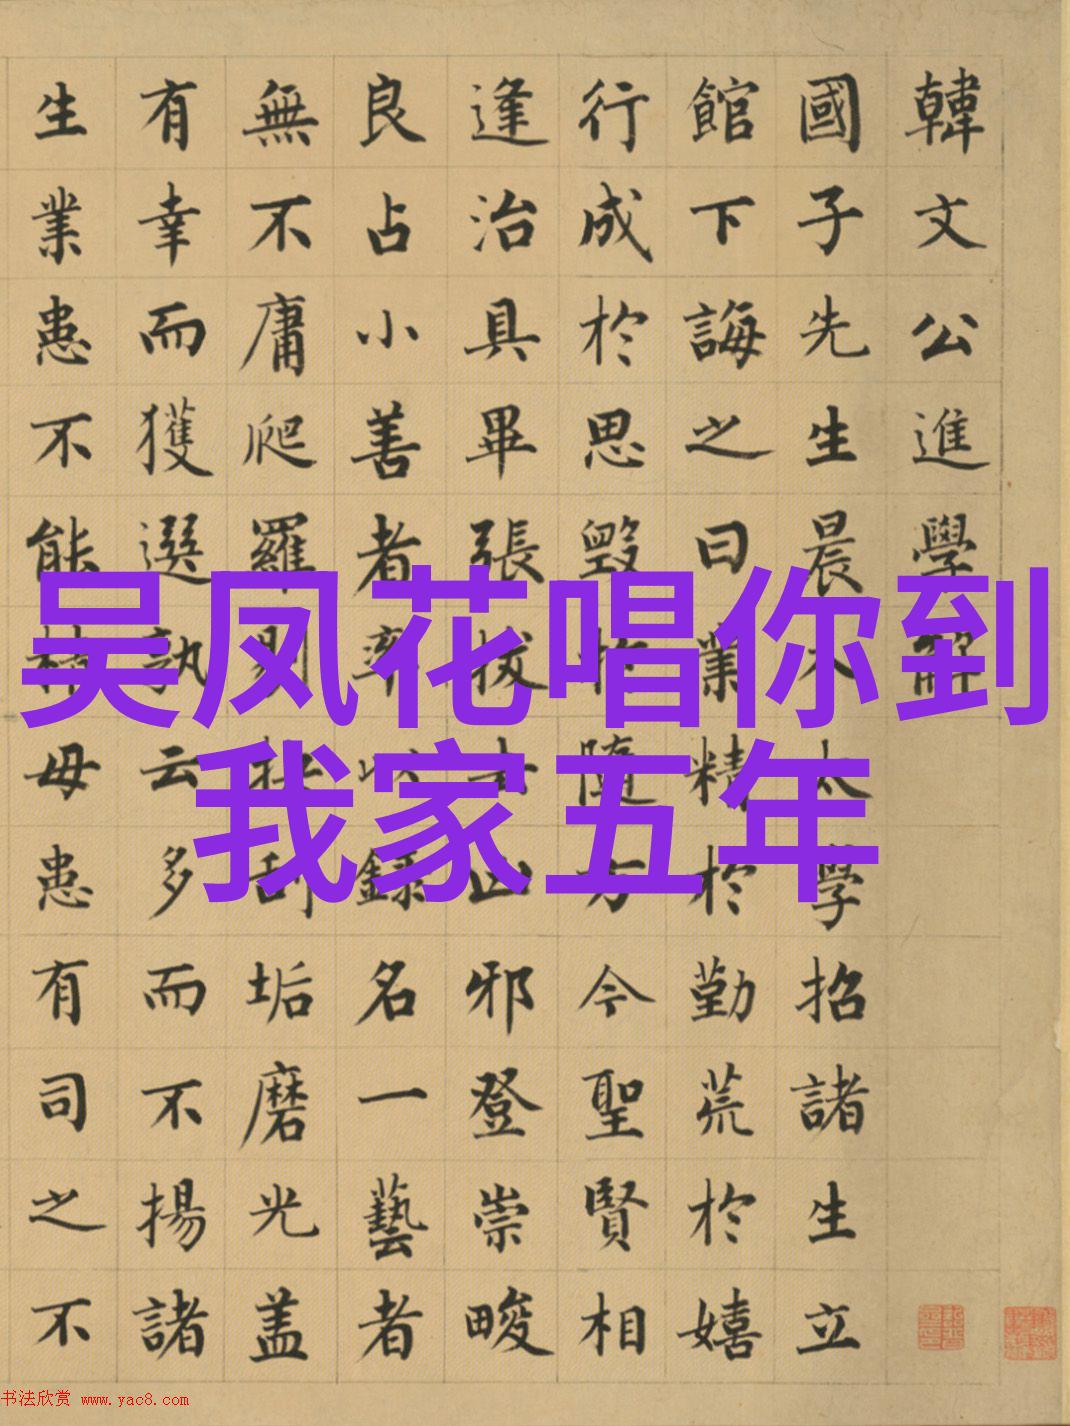 吴凤花唱你到
我家五年
韓文公進學解
國子先生晨入太學招諸生立
館下誨之曰業精於勤荒於嬉
行成於思毀於隨方今聖賢相
逢治具畢張拔去凶邪登崇畯
良占小善者率以錄名一藝者
無不庸爬羅剔抉刮垢磨光盖
有幸而獲選孰云多而不揚諸
生業患不能精毋患有司之不
书法欣赏 www.yac8.com